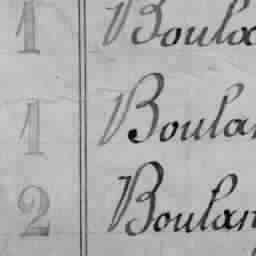 1 Boula
1 Boula
2 Boulan